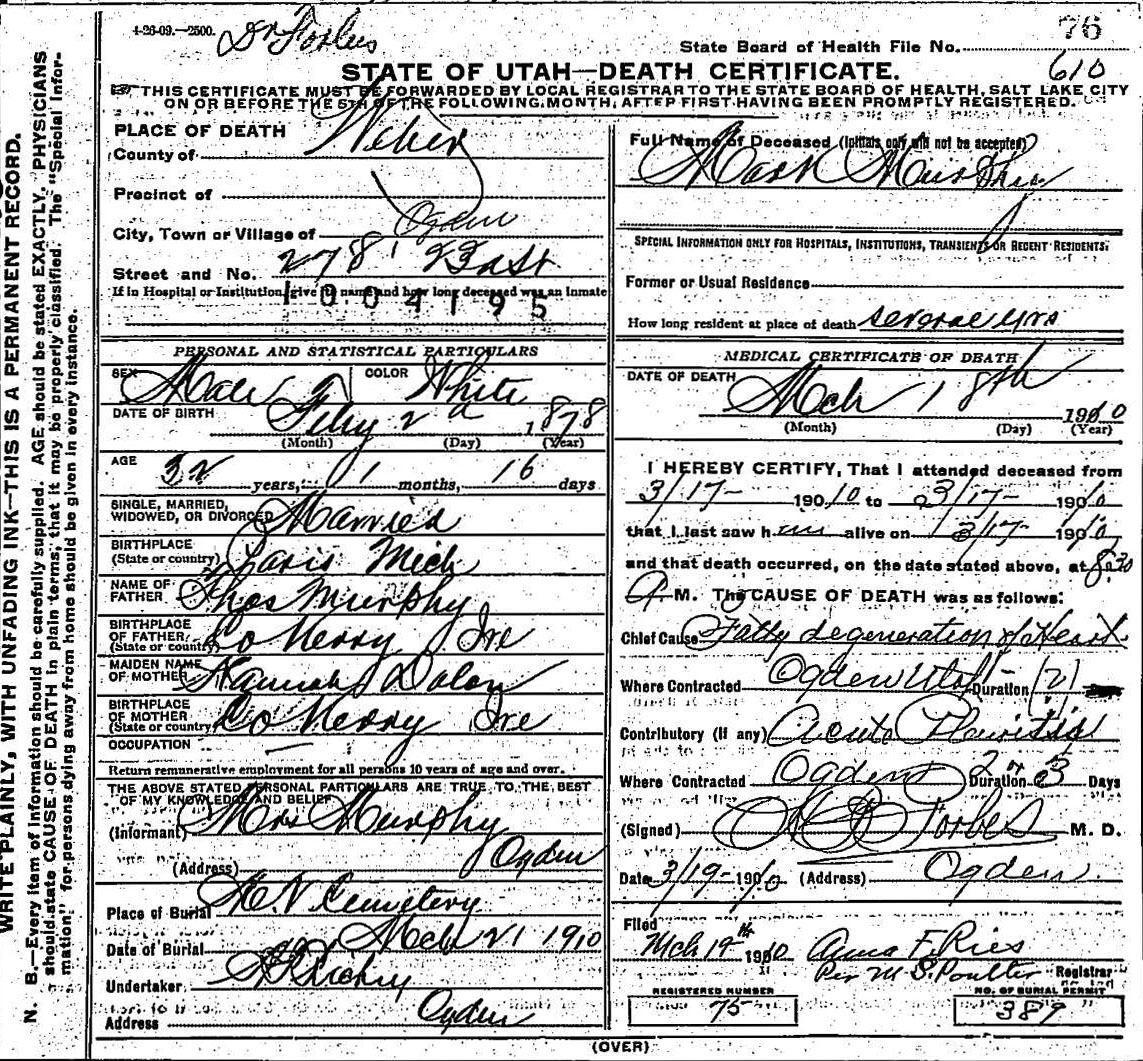 4-26-09.—2500.
Dr Forbes
State Board of Health File No. 76
610
STATE OF UTAH—DEATH CERTIFICATE.
THIS CERTIFICATE MUST BE FORWARDED BY LOCAL REGISTRAR TO THE STATE BOARD OF HEALTH, SALT LAKE CITY
ON OR BEFORE THE 5TH OF THE FOLLOWING MONTH, AFTER FIRST HAVING BEEN PROMPTLY REGISTERED.
WRITE PLAINLY, WITH UNFADING INK—THIS IS A PERMANENT RECORD.
N. B.—Every item of information should be carefully supplied. AGE should be stated EXACTLY. PHYSICIANS
should state CAUSE OF DEATH in plain terms, that it may be properly classified. The "Special Infor-
mation" for persons dying away from home should be given in every instance.
PLACE OF DEATH
County of Weber
Precinct of
City, Town or Village of Ogden
Street and No. 278 2 East
If in Hospital or Institution, give its name and how long deceased was an inmate
1004195
PERSONAL AND STATISTICAL PARTICULARS
SEX Male COLOR White
DATE OF BIRTH Feby 2d 1878
(Month) (Day) (Year)
AGE 32 years, 1 months, 16 days
SINGLE, MARRIED,
WIDOWED, OR DIVORCED Married
BIRTHPLACE
(State or country) Paris Mich
NAME OF
FATHER Thos Murphy
BIRTHPLACE
OF FATHER
(State or country) Co Kerry Ire
MAIDEN NAME
OF MOTHER Hannah Dolan
BIRTHPLACE
OF MOTHER
(State or country) Co Kerry Ire
OCCUPATION —
Return remunerative employment for all persons 10 years of age and over.
THE ABOVE STATED PERSONAL PARTICULARS ARE TRUE TO THE BEST
OF MY KNOWLEDGE AND BELIEF
(Informant) Mrs Murphy
(Address) Ogden
Place of Burial Cemetery
Date of Burial Mch 21 1910
Undertaker Richey
Address Ogden
Full Name of Deceased (Initials only will not be accepted)
Mark Murphy
SPECIAL INFORMATION ONLY FOR HOSPITALS, INSTITUTIONS, TRANSIENTS OR RECENT RESIDENTS.
Former or Usual Residence
How long resident at place of death several yrs
MEDICAL CERTIFICATE OF DEATH
DATE OF DEATH
Mch 18th 1910
(Month) (Day) (Year)
I HEREBY CERTIFY, That I attended deceased from
3/17- 190 10 to 3/17- 1910
that I last saw h im alive on 3/17- 1910,
and that death occurred, on the date stated above, at 8.30
A M. The CAUSE OF DEATH was as follows:
Chief Cause Fatty degeneration of Heart
Where Contracted Ogden Utah Duration (?) Days
Contributory (if any) Acute Pleuritis
Where Contracted Ogden Duration 2 or 3 Days
(Signed) Forbes M. D.
Date 3/19- 1910 (Address) Ogden
Filed
Mch 19th 1910 Anna F. Ries
Per M S. Poulter Registrar
REGISTERED NUMBER
75
NO. OF BURIAL PERMIT
389
(OVER)